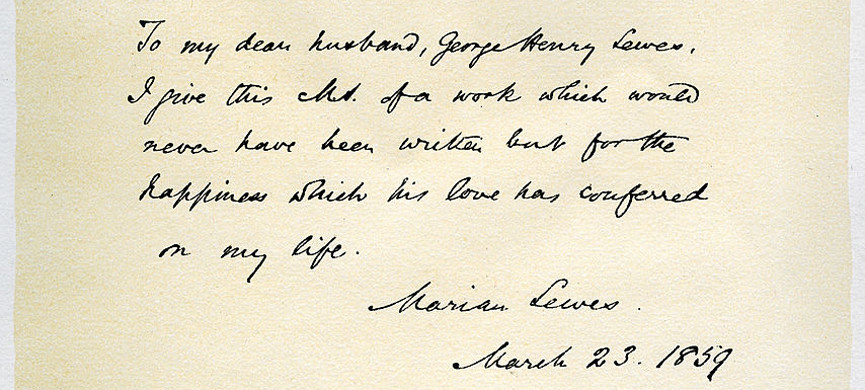 To my dear husband, George Henry Lewes,
I give this M.S. of a work which would
never have been written but for the
happiness which his love has conferred
on my life.
Marian Lewes.
March 23. 1859